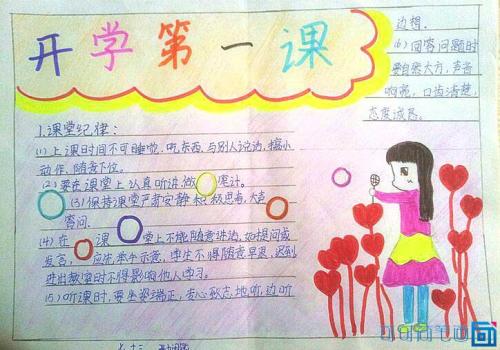 开学第一课
1.课堂纪律:
(1)上课时间不可睡觉.吃东西.与别人说话,搞小
动作,随意下位.
(2)要在课堂上认真听讲,做笔记.
(3)保持课堂严肃安静,积极思考,大声
答问.
(4)在课堂上不能随意讲话,如提问或
发言,应先举手示意,学生不得随意早退,迟到
进出教室时不得影响他人学习.
(5)听课时,要坐姿端正,专心致志地听,边听
边想.
(6)回答问题时
要自然大方,声音
响亮,口齿清楚,
态度诚恳.